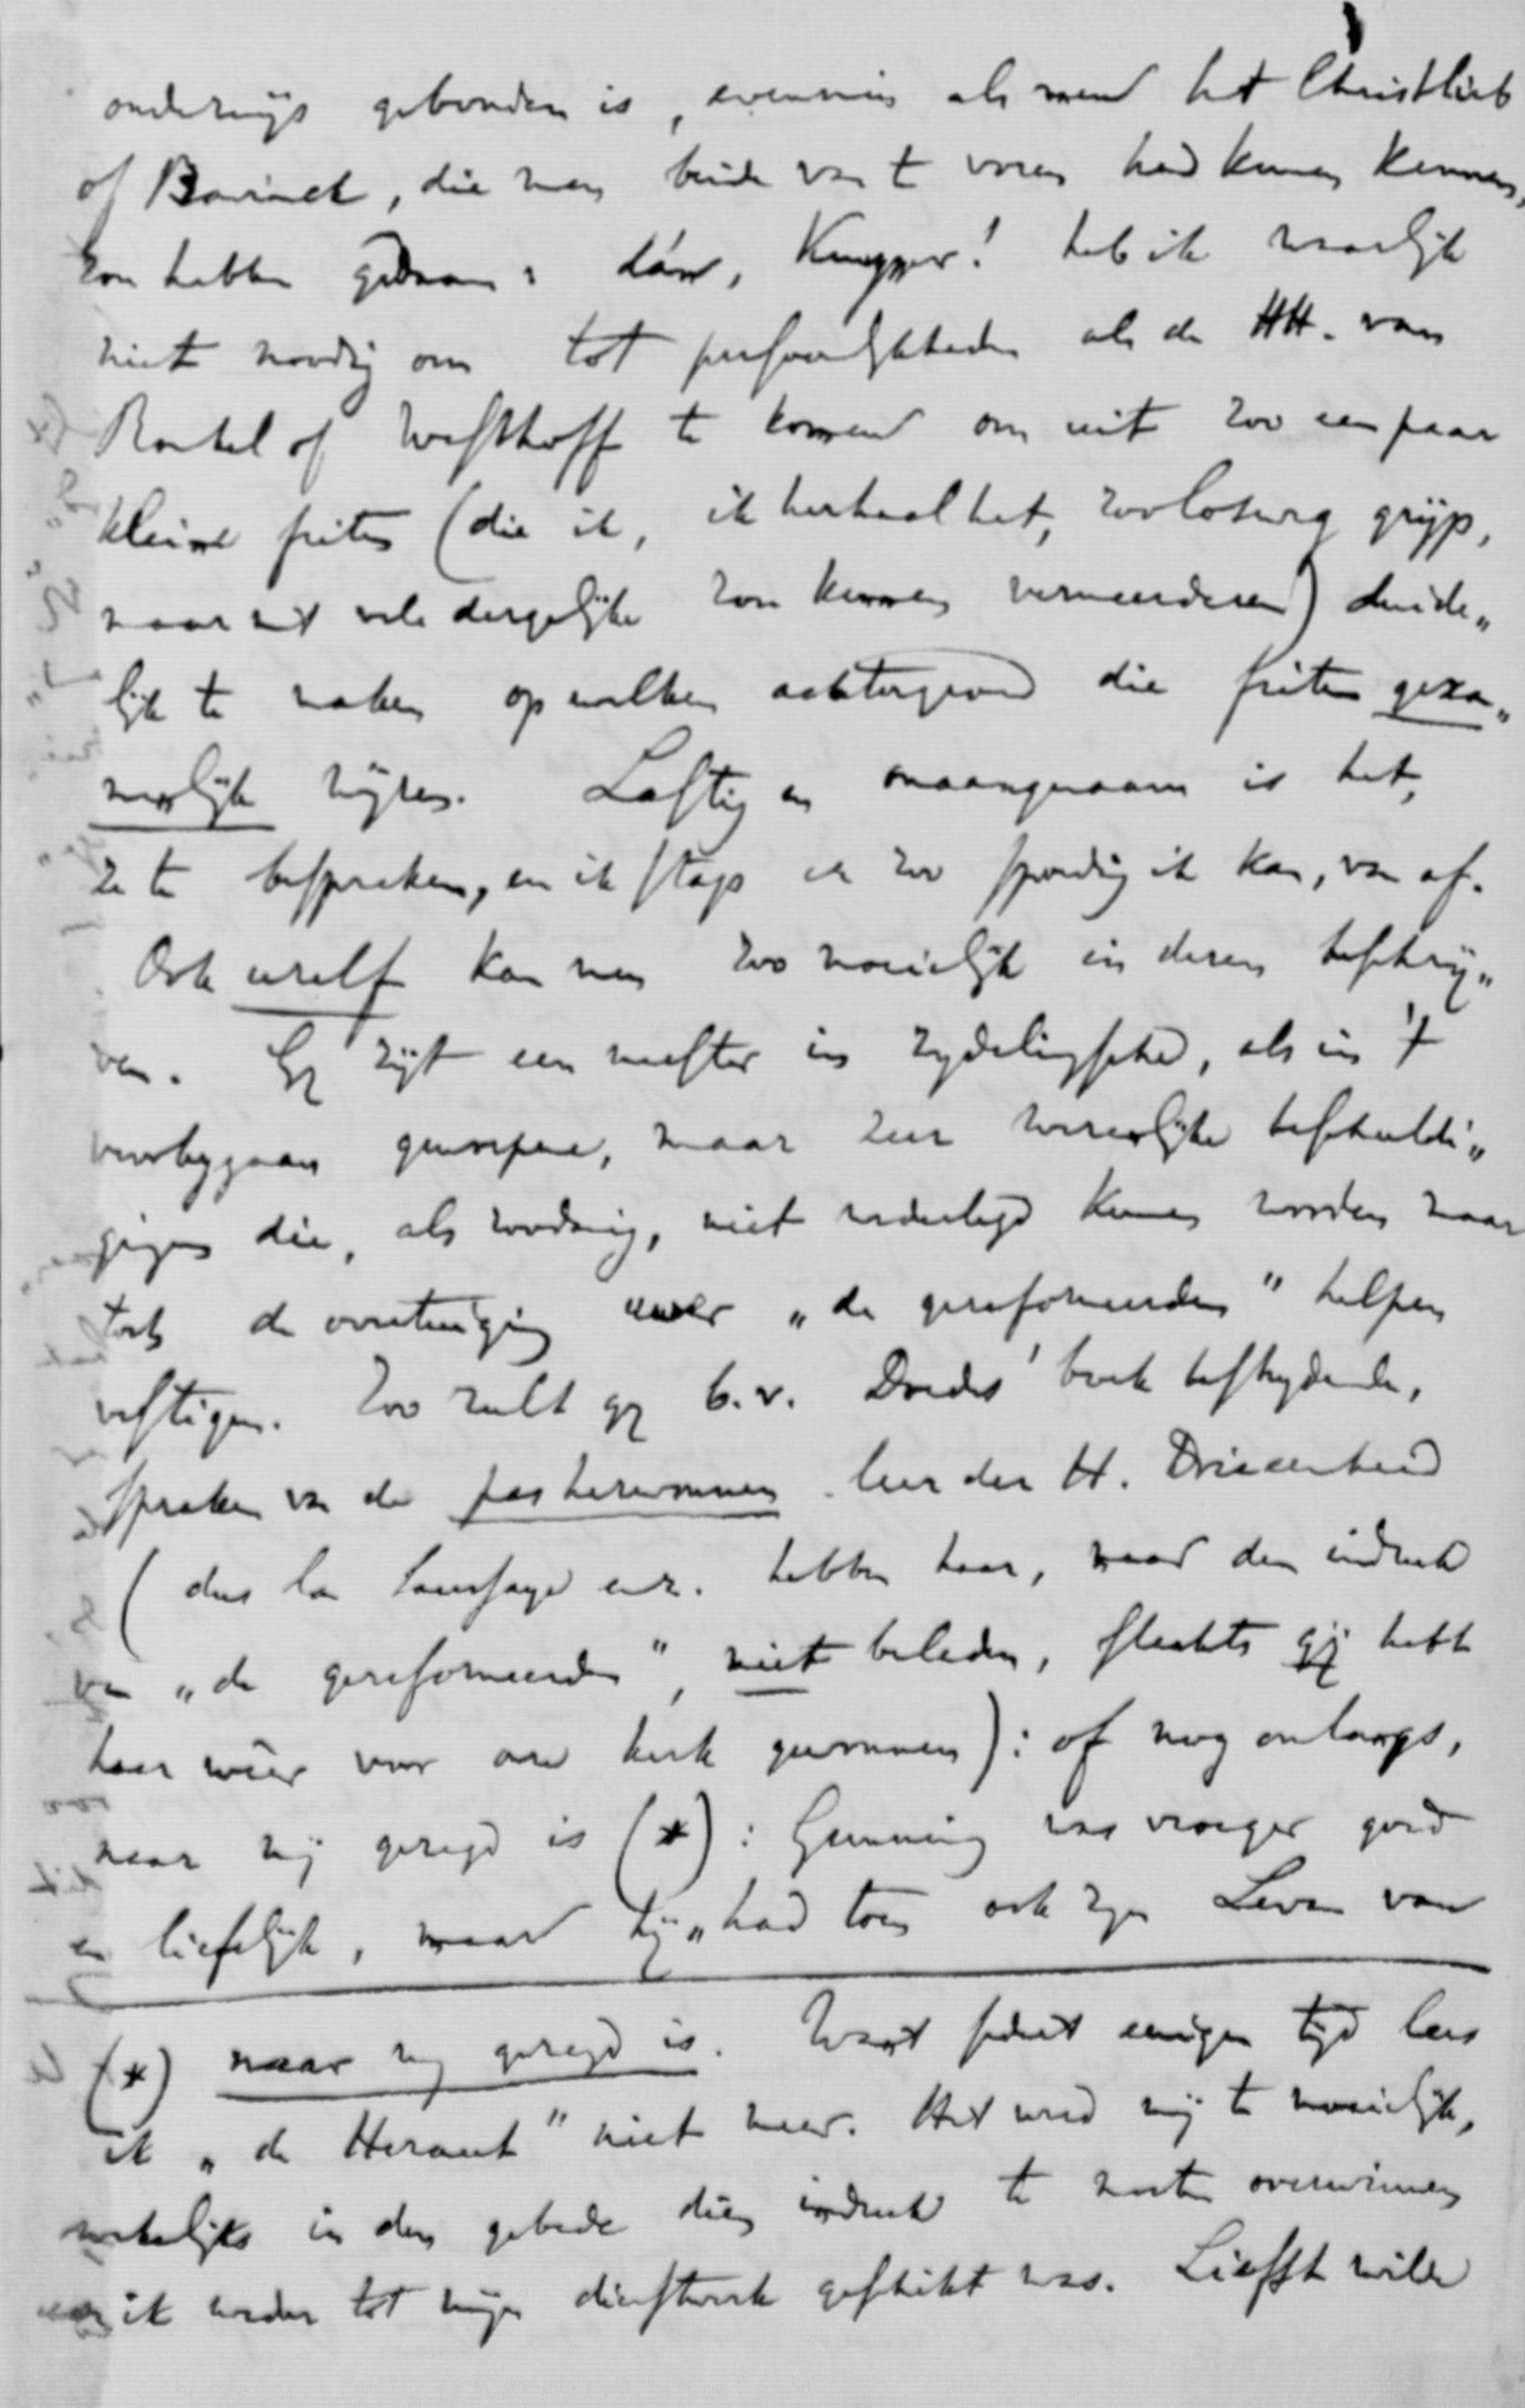 onderwijs gebonden is, evenmin als men het Christlieb
of Bavinck, die men beide van t voren had kunnen kennen,
zou hebben gedaan: dán, Kuyper! heb ik waarlijk
niet noodig om tot persoonlijkheden als de HH. van
Ronkel of Westhoff te komen om uit zoo een paar
kleine feiten (die ik, ik herhaal het, zoo losweg grijp,
maar met vele dergelijke zou kunnen vermeerderen) duide„
lijk te maken op welken achtergrond die feiten geza„
menlijk wijzen. Lastig en onaangenaam is het,
ze te bespreken, en ik stap er zoo spoedig ik kan, van af.
Ook uzelf kan men zoo moeielijk in dezen beschrij„
ven. Gij zijt een meester in zijdelingsche, als in 't
voorbijgaan geworpene, maar zeer wezenlijke beschuldi„
gingen die, als zoodanig, niet wederlegd kunnen worden maar
toch de overtuiging uwer „de gereformeerden" helpen
vestigen. Zoo zult gij b.v. Doedes' boek bestrijdende,
spreken van de pas herwonnen leer der H. Drieëenheid
(dus la Saussaye enz. hebben haar, naar den indruk
van „de gereformeerden", niet beleden, slechts gij hebt
haar wêer voor onze kerk gewonnen): of nog onlangs,
naar mij gezegd is (*): Gunning was vroeger goed
en liefelijk, maar hij „had toen ook zijn Leven van
(*) naar mij gezegd is. Want sedert eenigen tijd lees
ik „de Heraut" niet meer. Het werd mij te moeielijk,
wekelijks in den gebede dien indruk te moeten overwinnen
eer ik weder tot mijn dienstwerk geschikt was. Liefst wilde